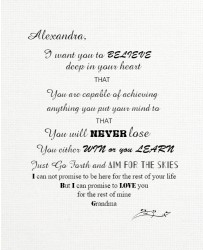 Alexandra,
I want you to BELIEVE
deep in your heart
THAT
You are capable of achieving
anything you put your mind to
THAT
You will NEVER lose
You either WIN or you LEARN
Just Go Forth and AIM FOR THE SKIES
I can not promise to be here for the rest of your life
But I can promise to LOVE you
for the rest of mine
Grandma